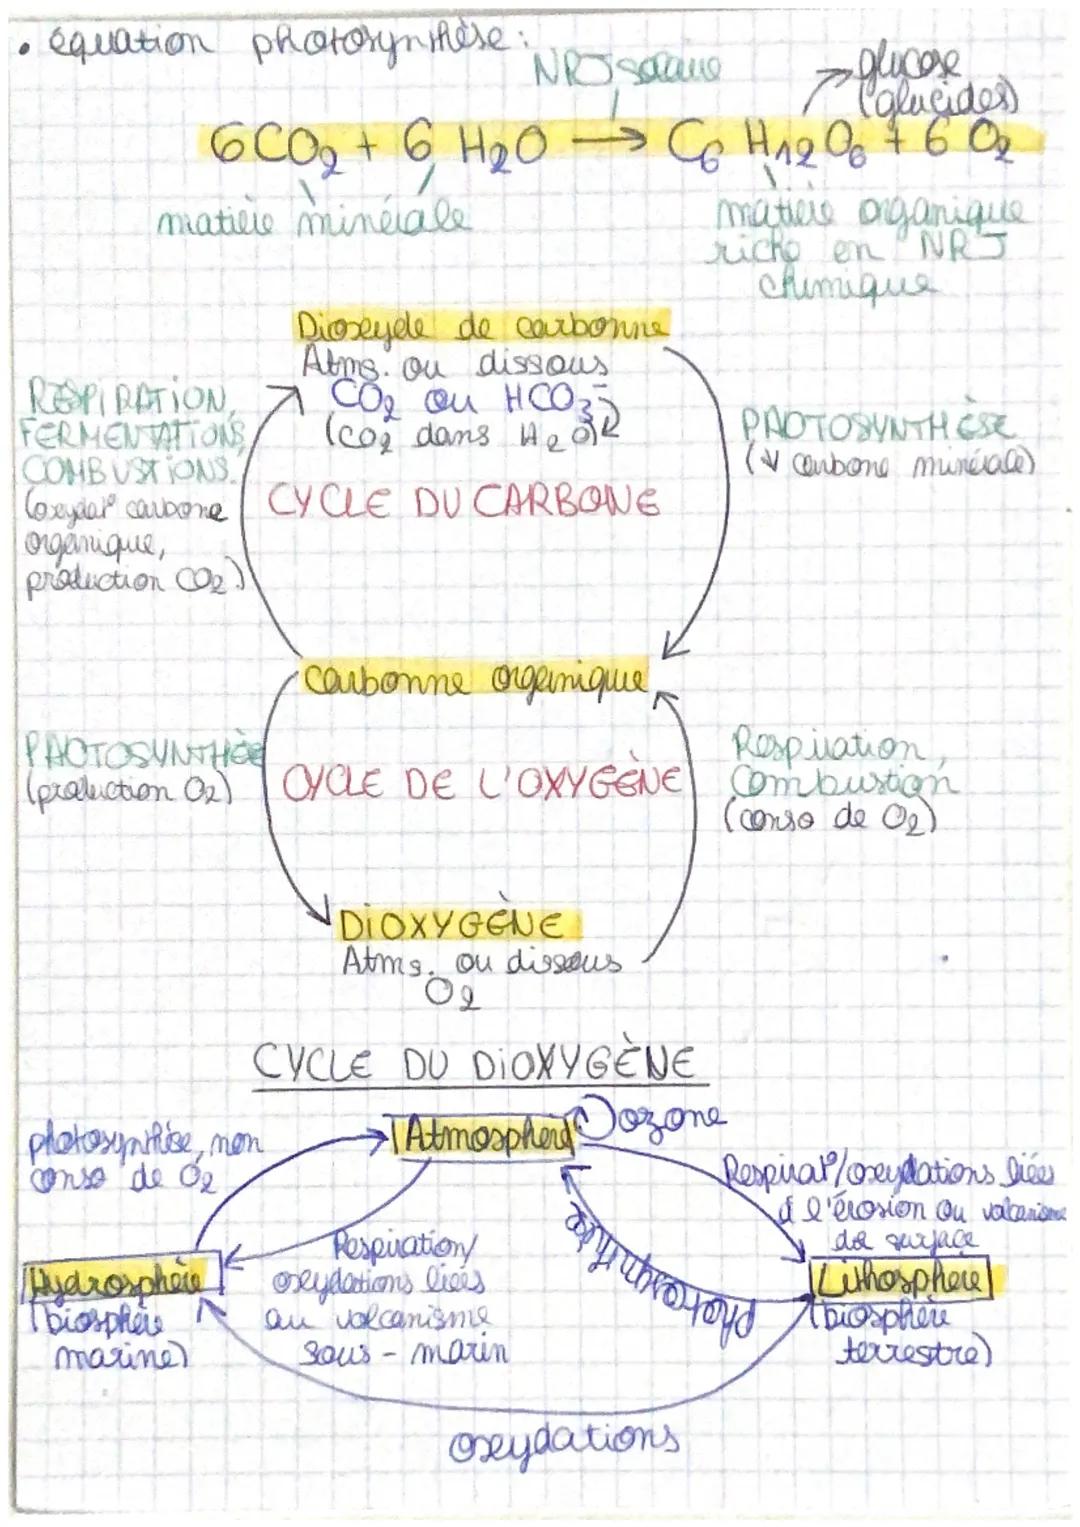 • équation photosynthèse :
NRJ solaire
glucose
(glucides)
6CO₂ + 6 H₂O → C₆ H₁₂ O₆ + 6 O₂
matière minérale
matière organique
riche en NRJ
chimique
Dioxyde de carbonne
Atms. ou dissous
CO₂ ou HCO₃⁻
(CO₂ dans H₂O)
RESPIRATION,
FERMENTATIONS,
COMBUSTIONS.
(oxydat° carbone
organique,
production CO₂)
PHOTOSYNTHÈSE
(↓ carbone minérale)
CYCLE DU CARBONE
carbonne organique
PHOTOSYNTHÈSE
(production O₂)
CYCLE DE L'OXYGÈNE
Respiration,
Combustion
(conso de O₂)
DIOXYGÈNE
Atms. ou dissous
O₂
CYCLE DU DIOXYGÈNE
photosynthèse, non
conso de O₂
Atmosphère
ozone
Respirat°/oxydations liées
à l'érosion ou volcanisme
de surface
Respiration/
oxydations liées
au volcanisme
sous-marin
photosynthèse
Hydrosphère
(biosphère
marine)
Lithosphère
(biosphère
terrestre)
oxydations